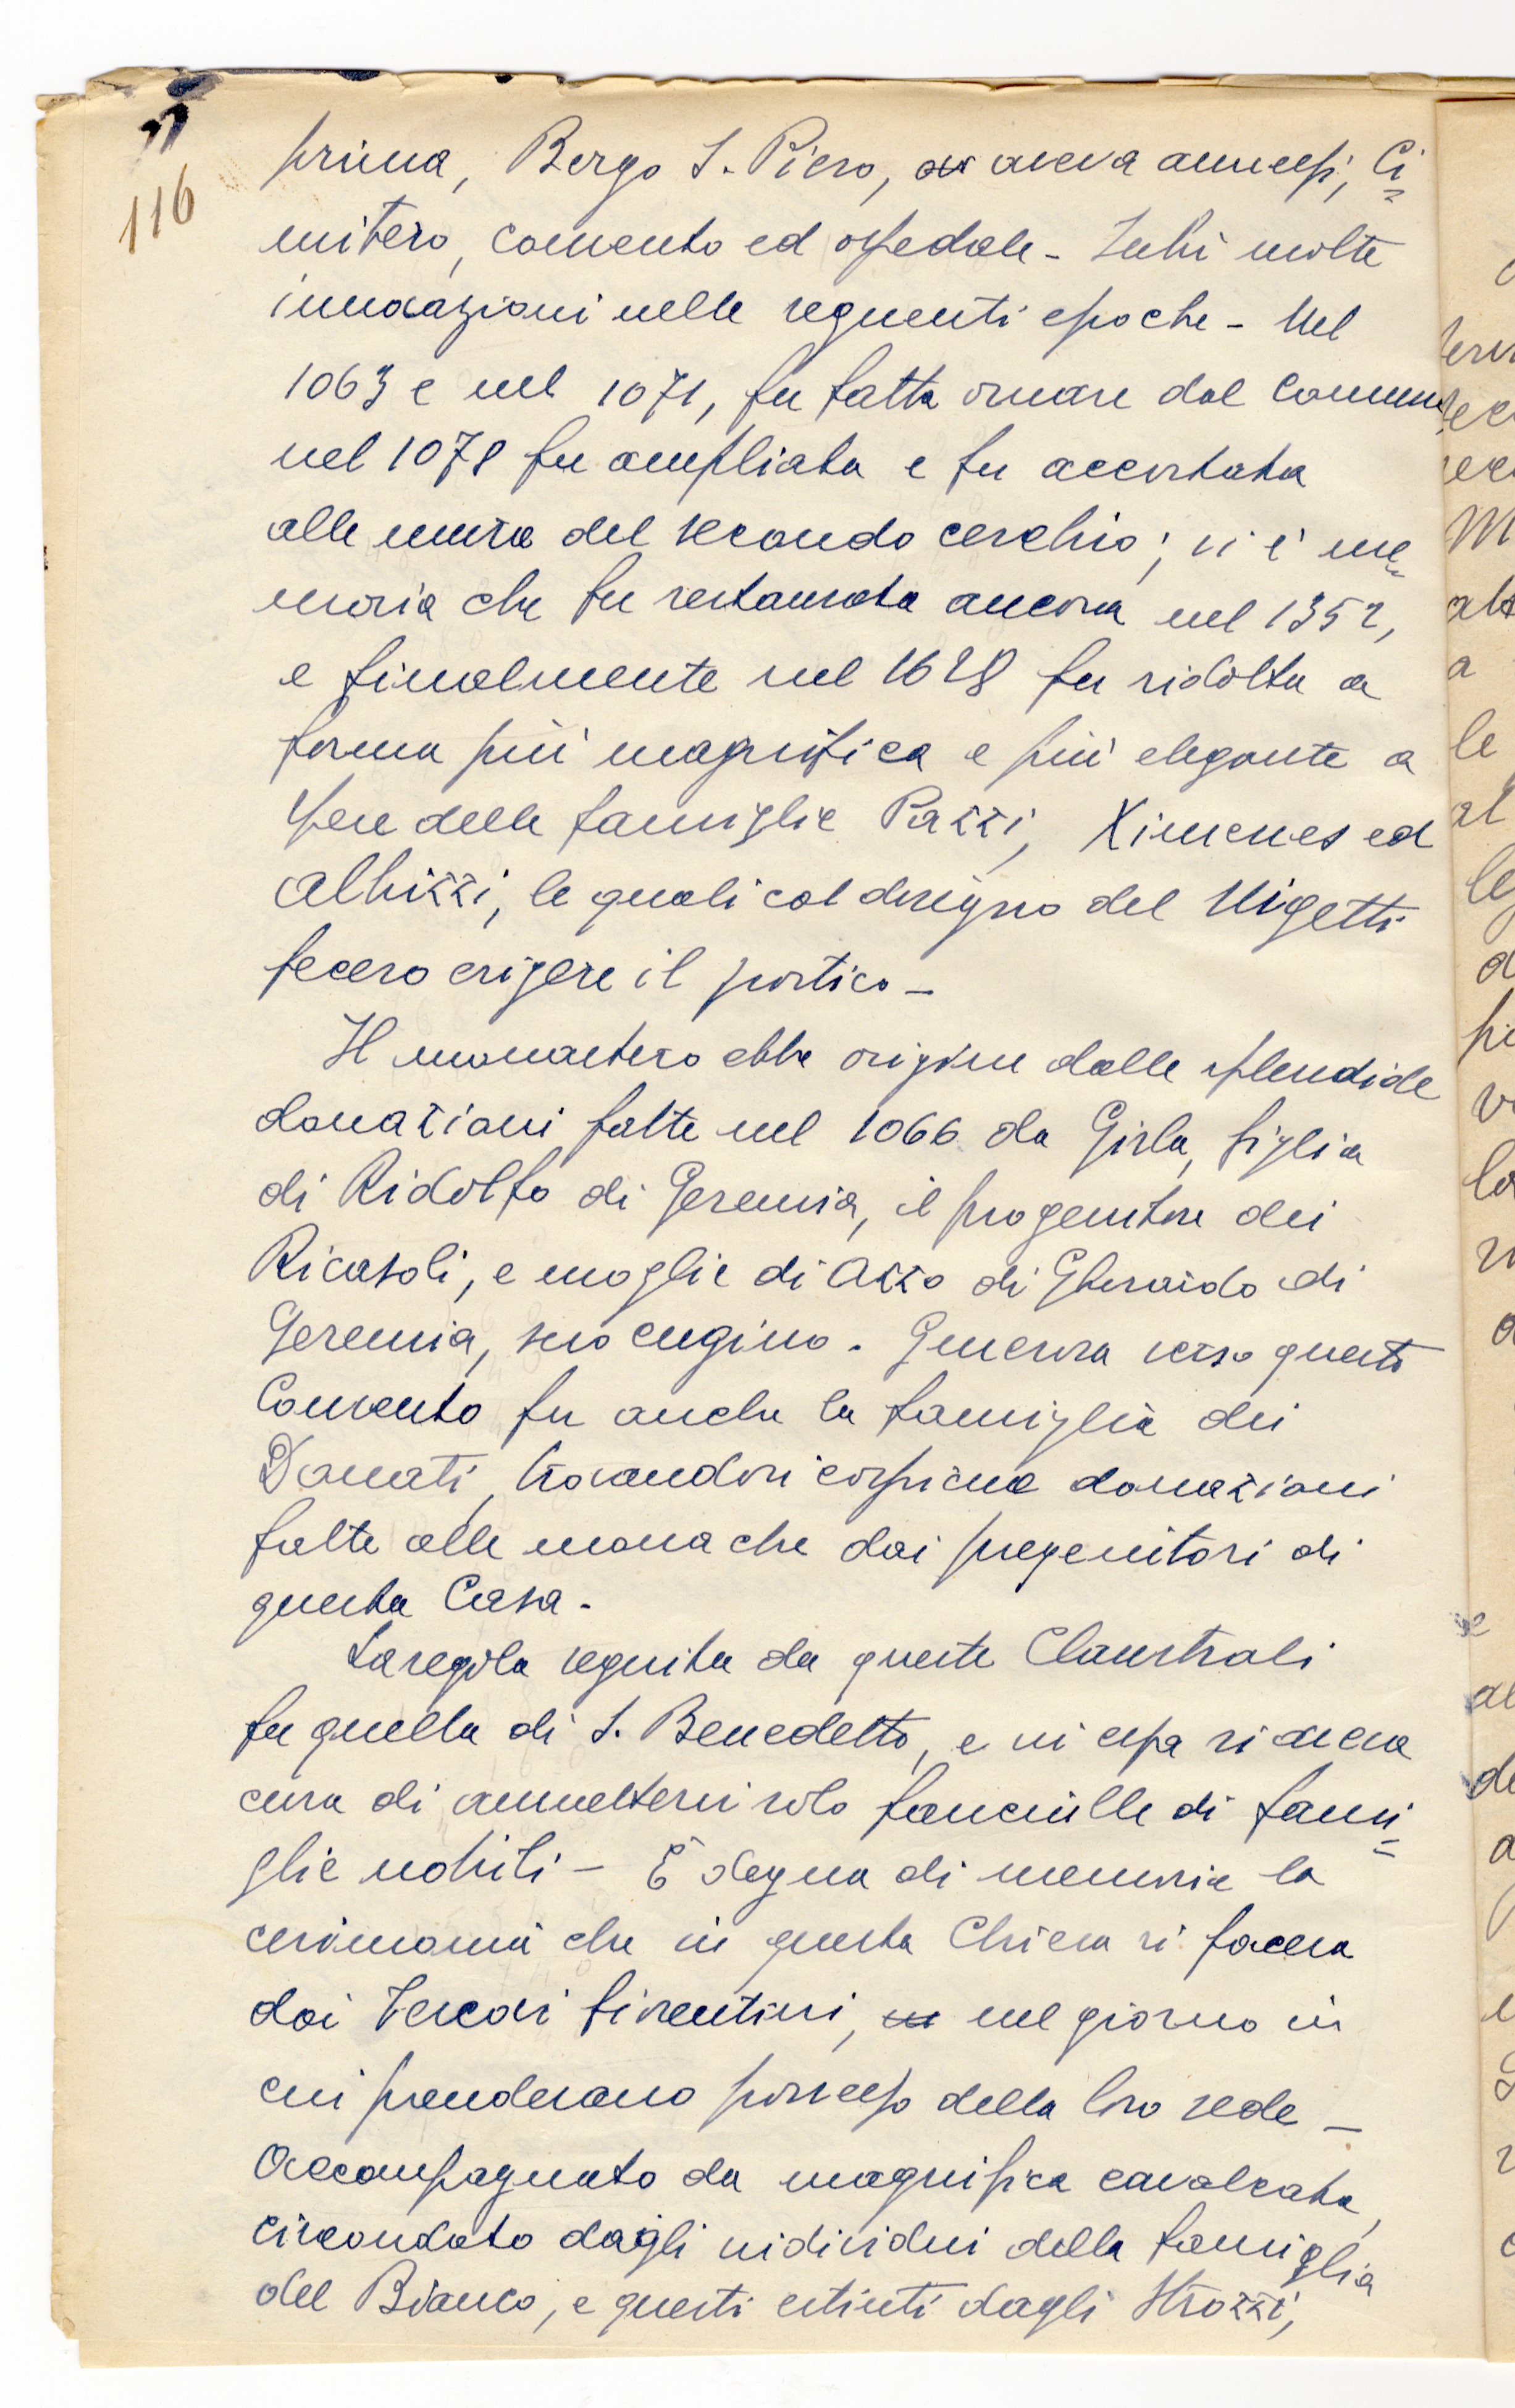 116
prima, Borgo S. Piero, aveva annessi, Ci=
mitero, convento ed ospedale - Subì molte
innovazioni nelle seguenti epoche - Nel
1063 e nel 1071, fu fatta ornare dal Comune
nel 1078 fu ampliata e fu accostata
alle mura del secondo cerchio; vi è me=
moria che fu restaurata ancora nel 1352,
e finalmente nel 1628 fu ridotta a
forma più magnifica e più elegante a
spese delle famiglie Pazzi, Ximenes ed
Albizzi, le quali col disegno del Nigetti
fecero erigere il portico -
Il monastero ebbe origine dalle splendide
donazioni fatte nel 1066 da Gisla, figlia
di Ridolfo di Geremia, il progenitore dei
Ricasoli, e moglie di Azzo di Gherardo di
Geremia, suo cugino. Generosa verso questo
Convento fu anche la famiglia dei
Donati, trovandosi cospicue donazioni
fatte alle monache dai progenitori di
questa Casa.
La regola seguita da queste Claustrali
fu quella di S. Benedetto, e in essa si aveva
cura di ammettervi solo fanciulle di fami=
glie nobili - È degna di memoria la
cerimonia che in questa Chiesa si faceva
dai Vescovi fiorentini, nel giorno in
cui prendevano possesso della loro sede -
Accompagnato da magnifica cavalcata,
circondato dagli individui della famiglia
del Bianco, e questi estinti dagli Strozzi,